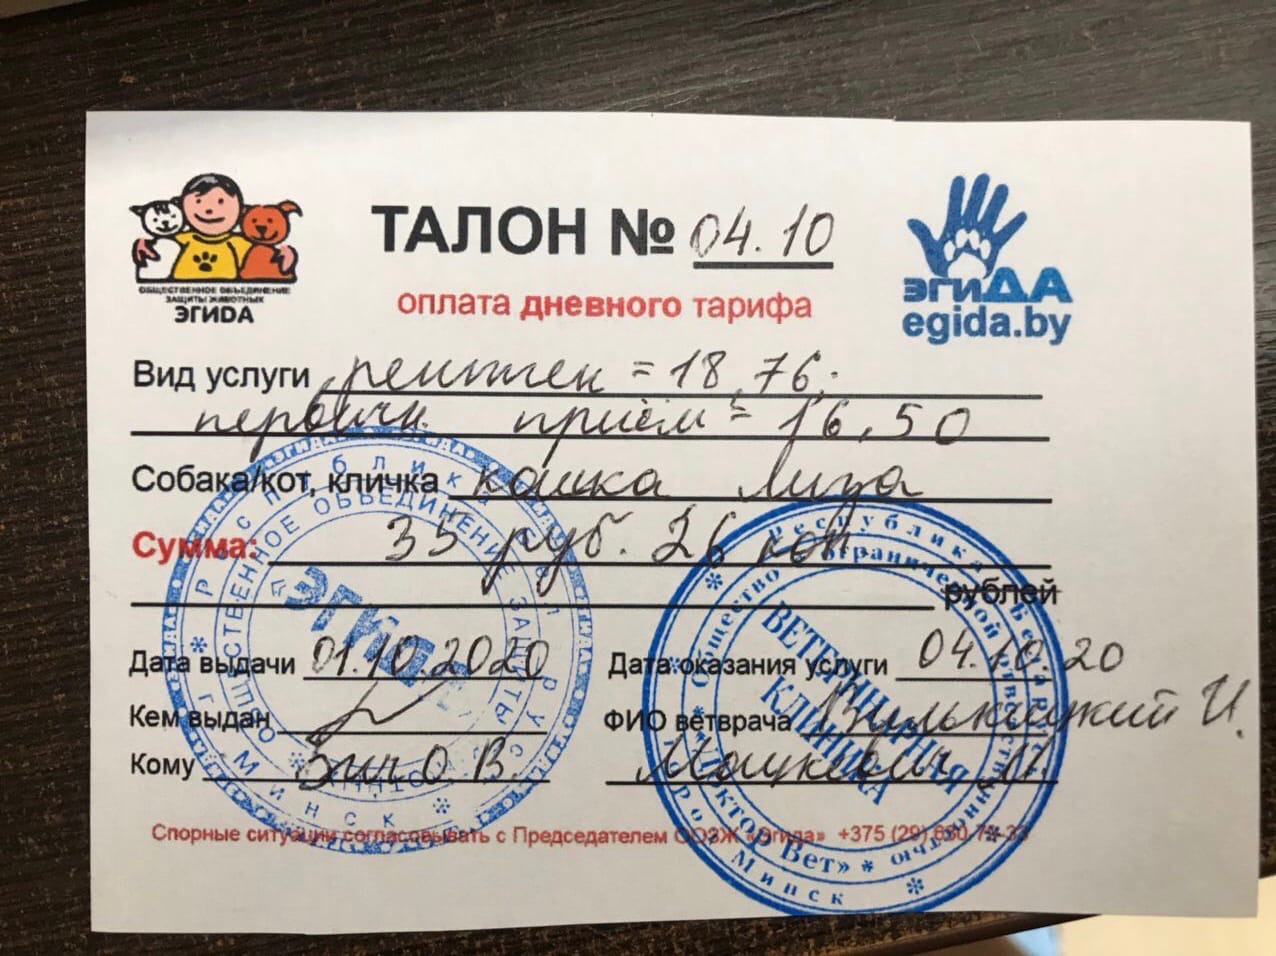 ОБЩЕСТВЕННОЕ ОБЪЕДИНЕНИЕ
ЗАЩИТЫ ЖИВОТНЫХ
ЭГИДА
ТАЛОН № 04.10
оплата дневного тарифа
эгиДА
egida.by
Вид услуги рентген = 18,76;
первичн. приём = 16,50
Собака/кот, кличка кошка Лиза
Сумма: 35 руб. 26 коп
рублей
Дата выдачи 01.10.2020
Дата оказания услуги 04.10.20
Кем выдан
ФИО ветврача Вилькицкий И.
Кому Зич О.В.
Мацкевич
Спорные ситуации согласовывать с Председателем ООЗЖ «Эгида» +375 (29)
Республика Беларусь
г. Минск
Общественное объединение защиты животных
«ЭГИДА»
Республика Беларусь
город Минск
Общество с ограниченной ответственностью
«Доктор Вет»
ВЕТЕРИНАРНАЯ
КЛИНИКА